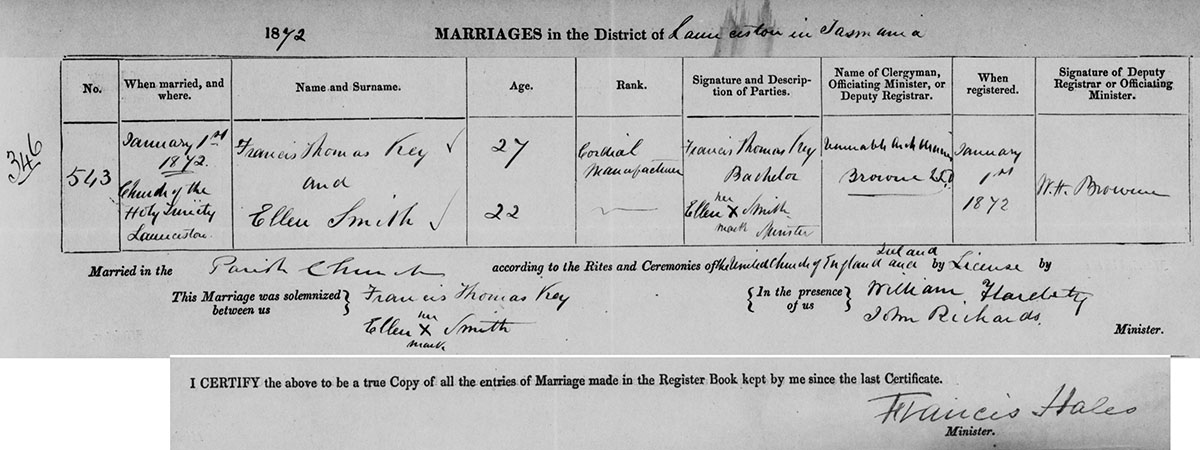 1872 MARRIAGES in the District of Launceston in Tasmania
346
No. When married, and where. Name and Surname. Age. Rank. Signature and Description of Parties. Name of Clergyman, Officiating Minister, or Deputy Registrar. When registered. Signature of Deputy Registrar or Officiating Minister.
543
January 1st
1872.
Church of the
Holy Trinity
Launceston
Francis Thomas Key
and
Ellen Smith
27
22
Cordial
Manufacturer
Francis Thomas Key
Bachelor
her
Ellen X Smith
mark Spinster
Venerable
Browne
January
1st
1872
W. H. Browne
Married in the Parish Church according to the Rites and Ceremonies of the United Church of England and Ireland by License by
This Marriage was solemnized between us
Francis Thomas Key
her
Ellen X Smith
mark
In the presence of us
William
John Richards.
Minister.
I CERTIFY the above to be a true Copy of all the entries of Marriage made in the Register Book kept by me since the last Certificate.
Francis Hales
Minister.